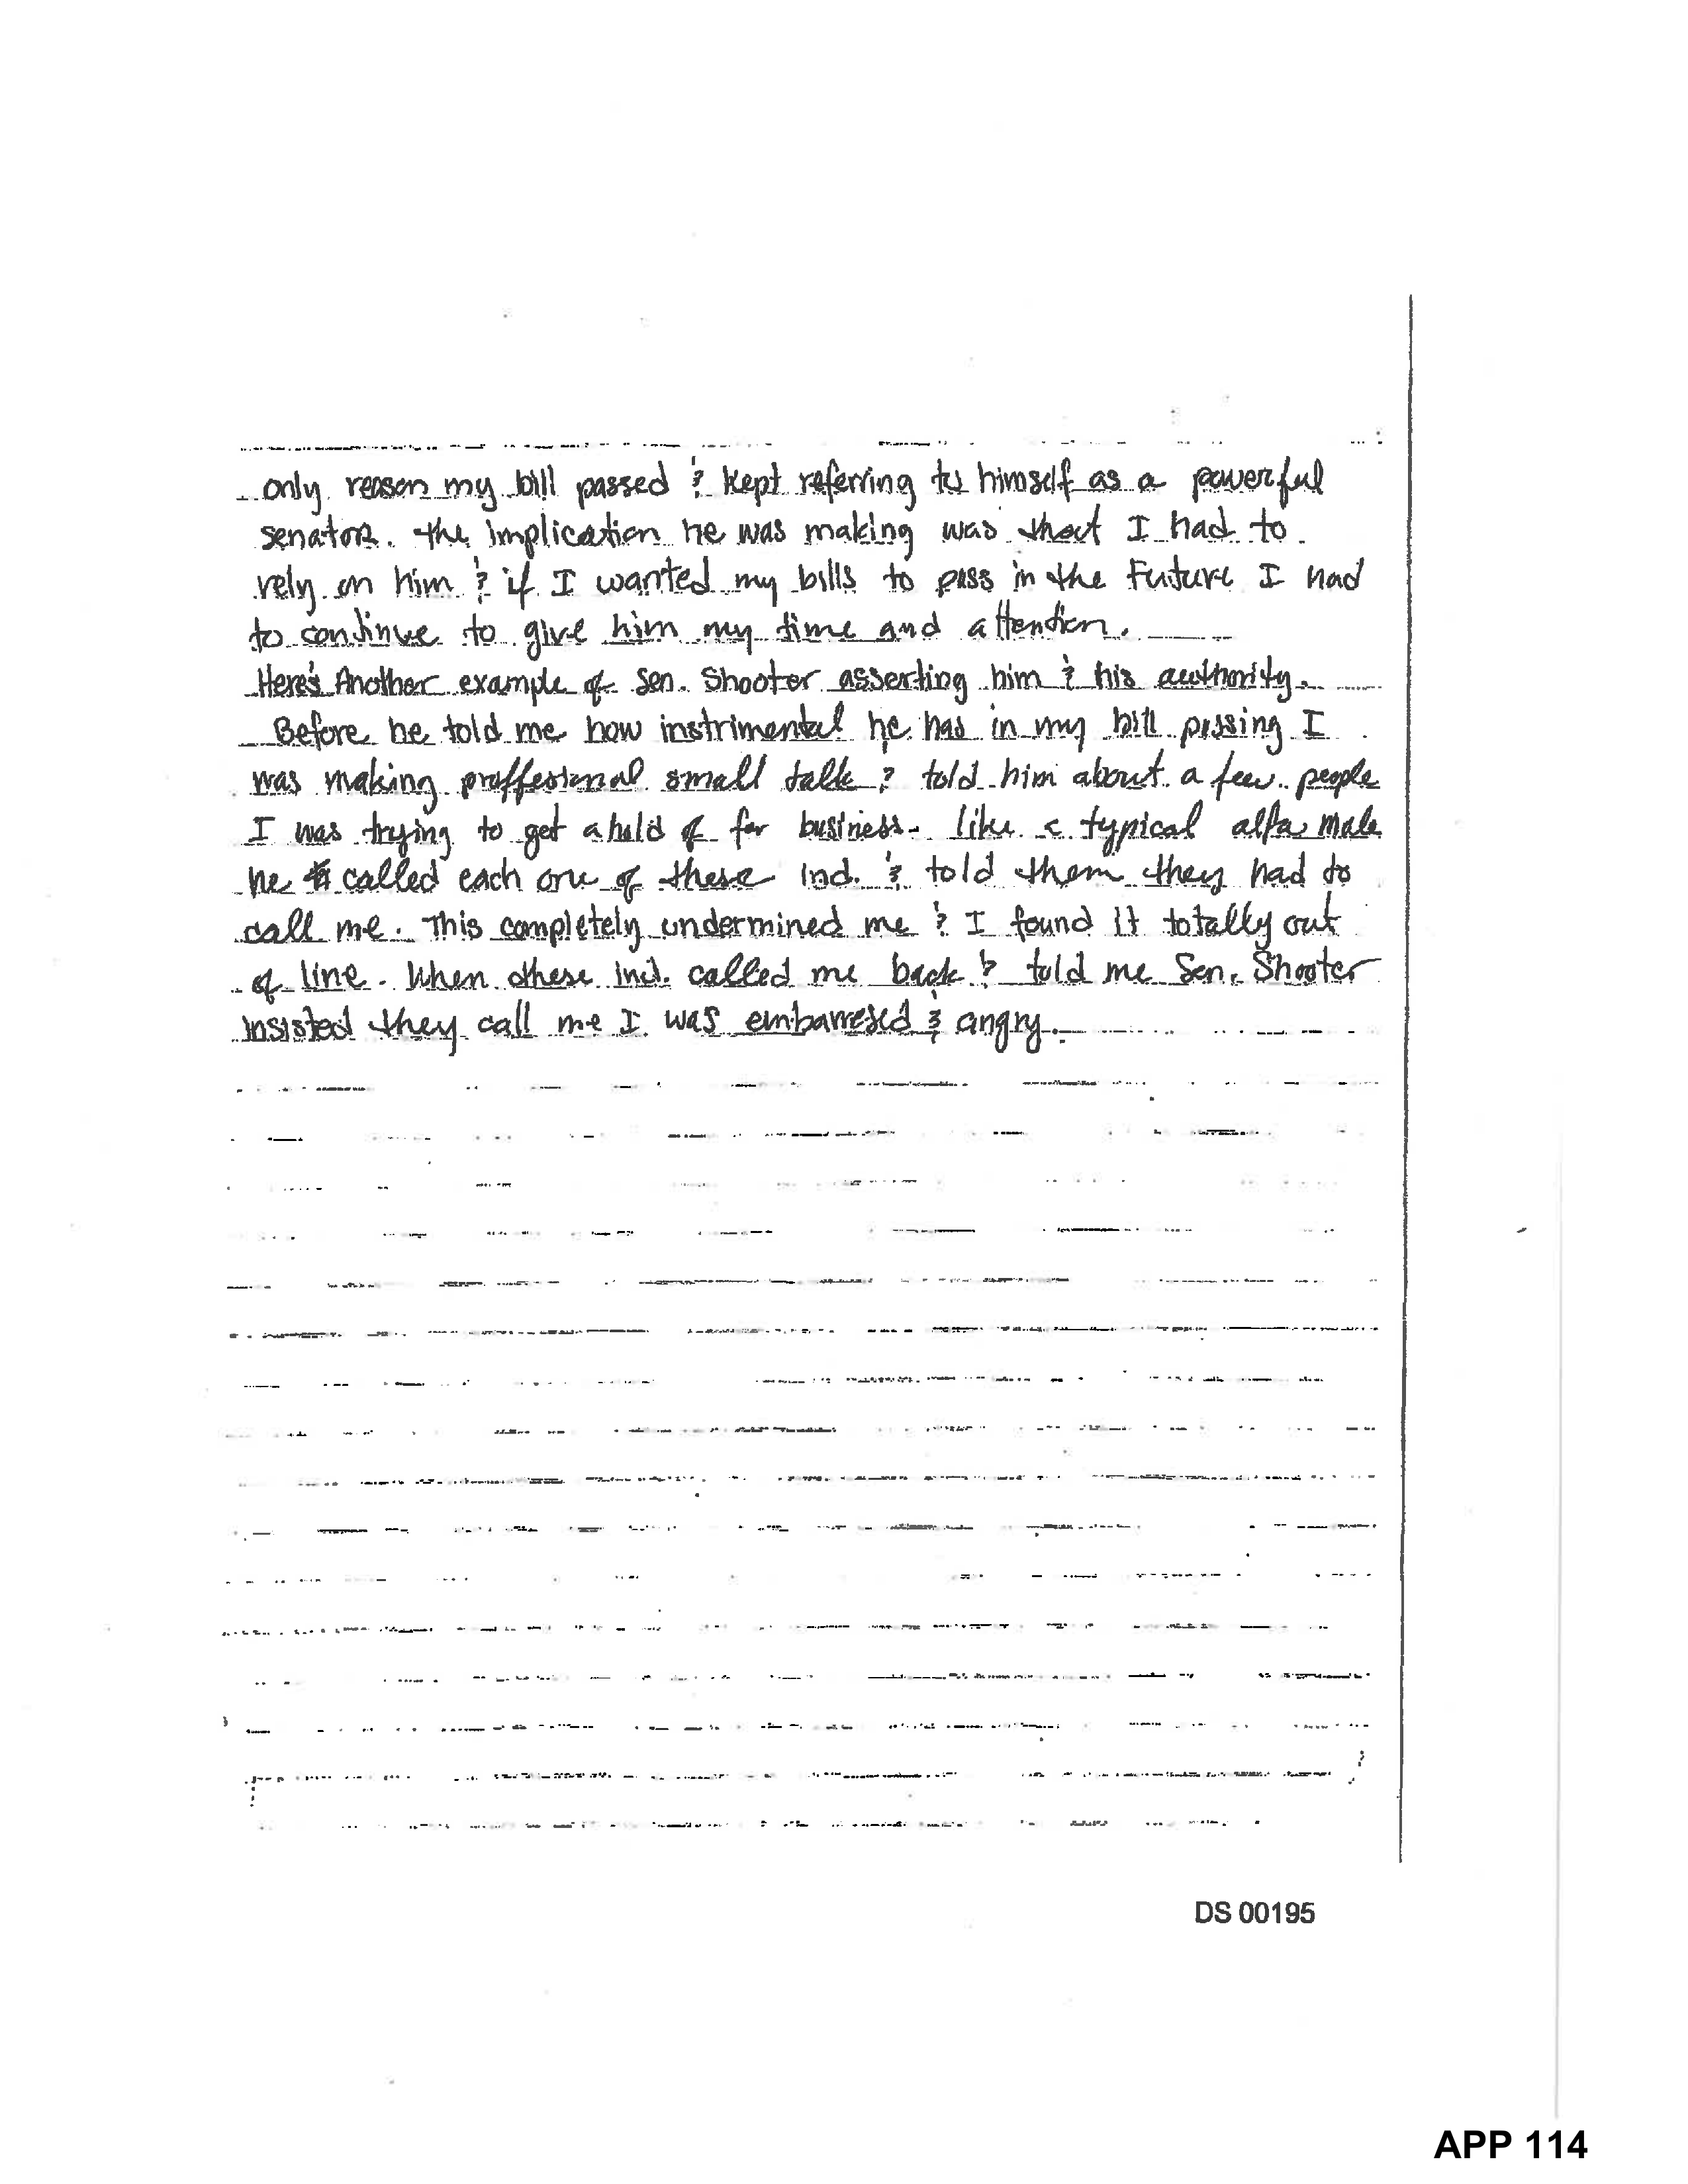 only reason my bill passed & kept referring to himself as a powerful
senator. the implication he was making was that I had to
rely on him & if I wanted my bills to pass in the Future I had
to continue to give him my time and attention.
Here's Another example of Sen. Shooter asserting him & his authority.
Before he told me how instrimental he has in my bill passing I
was making proffesional small talk & told him about a few people
I was trying to get ahold of for business. like a typical alfa male
he called each one of these ind. & told them they had to
call me. This completely undermined me & I found it totally out
of line. When these ind. called me back & told me Sen. Shooter
insisted they call me I was embarresed & angry.
DS 00195
APP 114